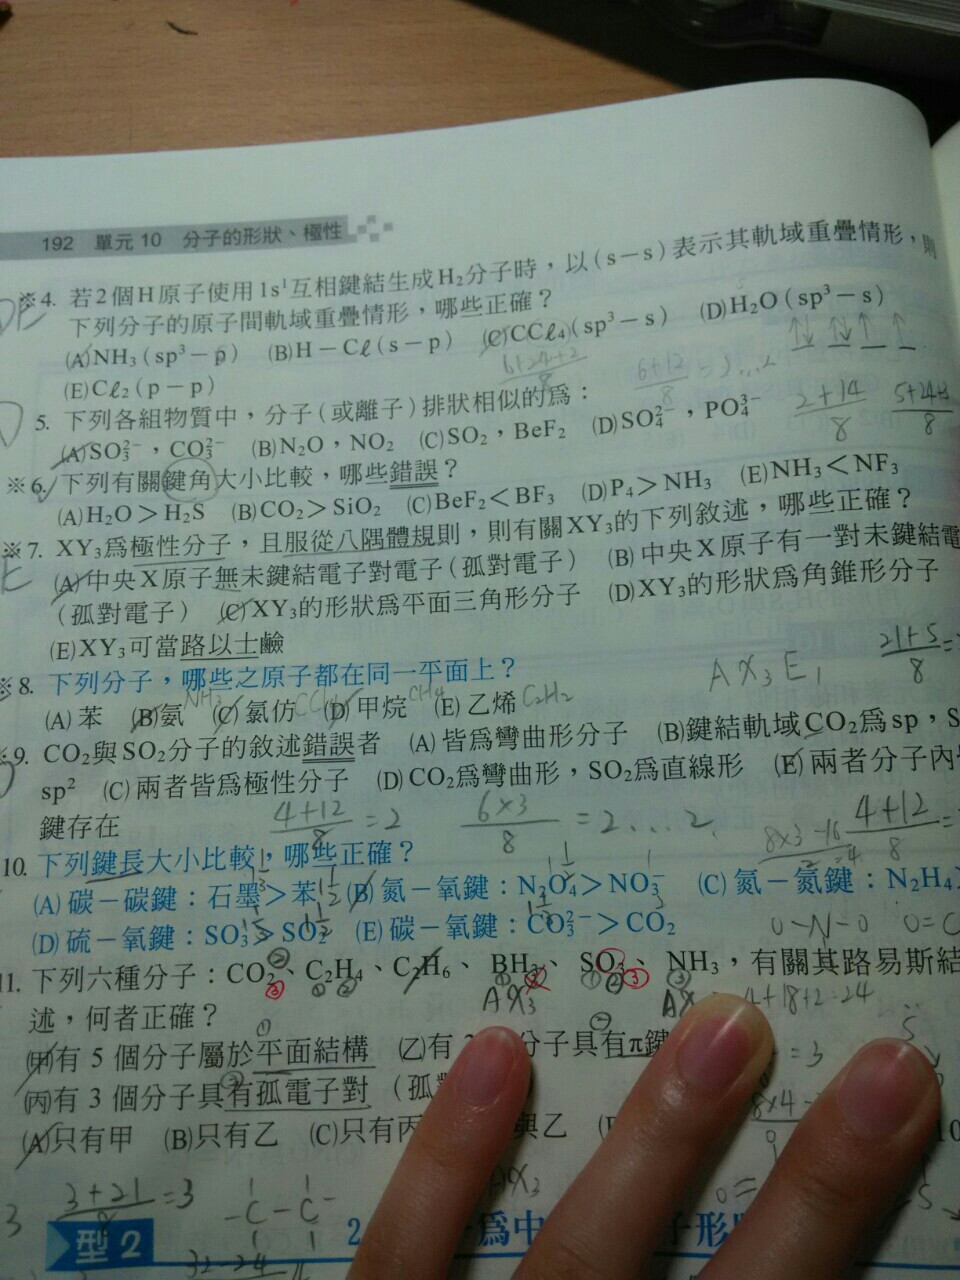 192 單元10 分子的形狀、極性
※4. 若2個H原子使用1s¹互相鍵結生成H₂分子時，以(s－s)表示其軌域重疊情形，則
下列分子的原子間軌域重疊情形，哪些正確？
(A)NH₃(sp³－p) (B)H－Cℓ(s－p) (C)CCℓ₄(sp³－s) (D)H₂O(sp³－s)
(E)Cℓ₂(p－p)
5. 下列各組物質中，分子(或離子)排狀相似的為：
(A)SO₃²⁻，CO₃²⁻ (B)N₂O，NO₂ (C)SO₂，BeF₂ (D)SO₄²⁻，PO₄³⁻
2+14/8
※6. 下列有關鍵角大小比較，哪些錯誤？
(A)H₂O＞H₂S (B)CO₂＞SiO₂ (C)BeF₂＜BF₃ (D)P₄＞NH₃ (E)NH₃＜NF₃
※7. XY₃為極性分子，且服從八隅體規則，則有關XY₃的下列敘述，哪些正確？
(A)中央X原子無未鍵結電子對電子(孤對電子) (B)中央X原子有一對未鍵結電
(孤對電子) (C)XY₃的形狀為平面三角形分子 (D)XY₃的形狀為角錐形分子
(E)XY₃可當路以士鹼
21+5/8
AX₃E₁
※8. 下列分子，哪些之原子都在同一平面上？
(A)苯 (B)氨 NH₃ (C)氯仿 (D)甲烷 CH₄ (E)乙烯 C₂H₂
※9. CO₂與SO₂分子的敘述錯誤者 (A)皆為彎曲形分子 (B)鍵結軌域CO₂為sp，S
sp² (C)兩者皆為極性分子 (D)CO₂為彎曲形，SO₂為直線形 (E)兩者分子內
鍵存在
4+12/8=2 6×3/8=2…2 4+12/8
10. 下列鍵長大小比較，哪些正確？
(A)碳－碳鍵：石墨＞苯 (B)氮－氧鍵：N₂O₄＞NO₃⁻ (C)氮－氮鍵：N₂H₄
(D)硫－氧鍵：SO₃＞SO₂ (E)碳－氧鍵：CO₃²⁻＞CO₂
O-N-O O=C
11. 下列六種分子：CO₂、C₂H₄、C₂H₆、BH₃、SO₃、NH₃，有關其路易斯結
AX₃ 4+18+2=24
述，何者正確？
(甲)有5個分子屬於平面結構 (乙)有 分子具有π鍵
(丙)有3個分子具有孤電子對 (孤
(A)只有甲 (B)只有乙 (C)只有丙 與乙
3+21/8=3 -C-C- AX₃
型2 為中